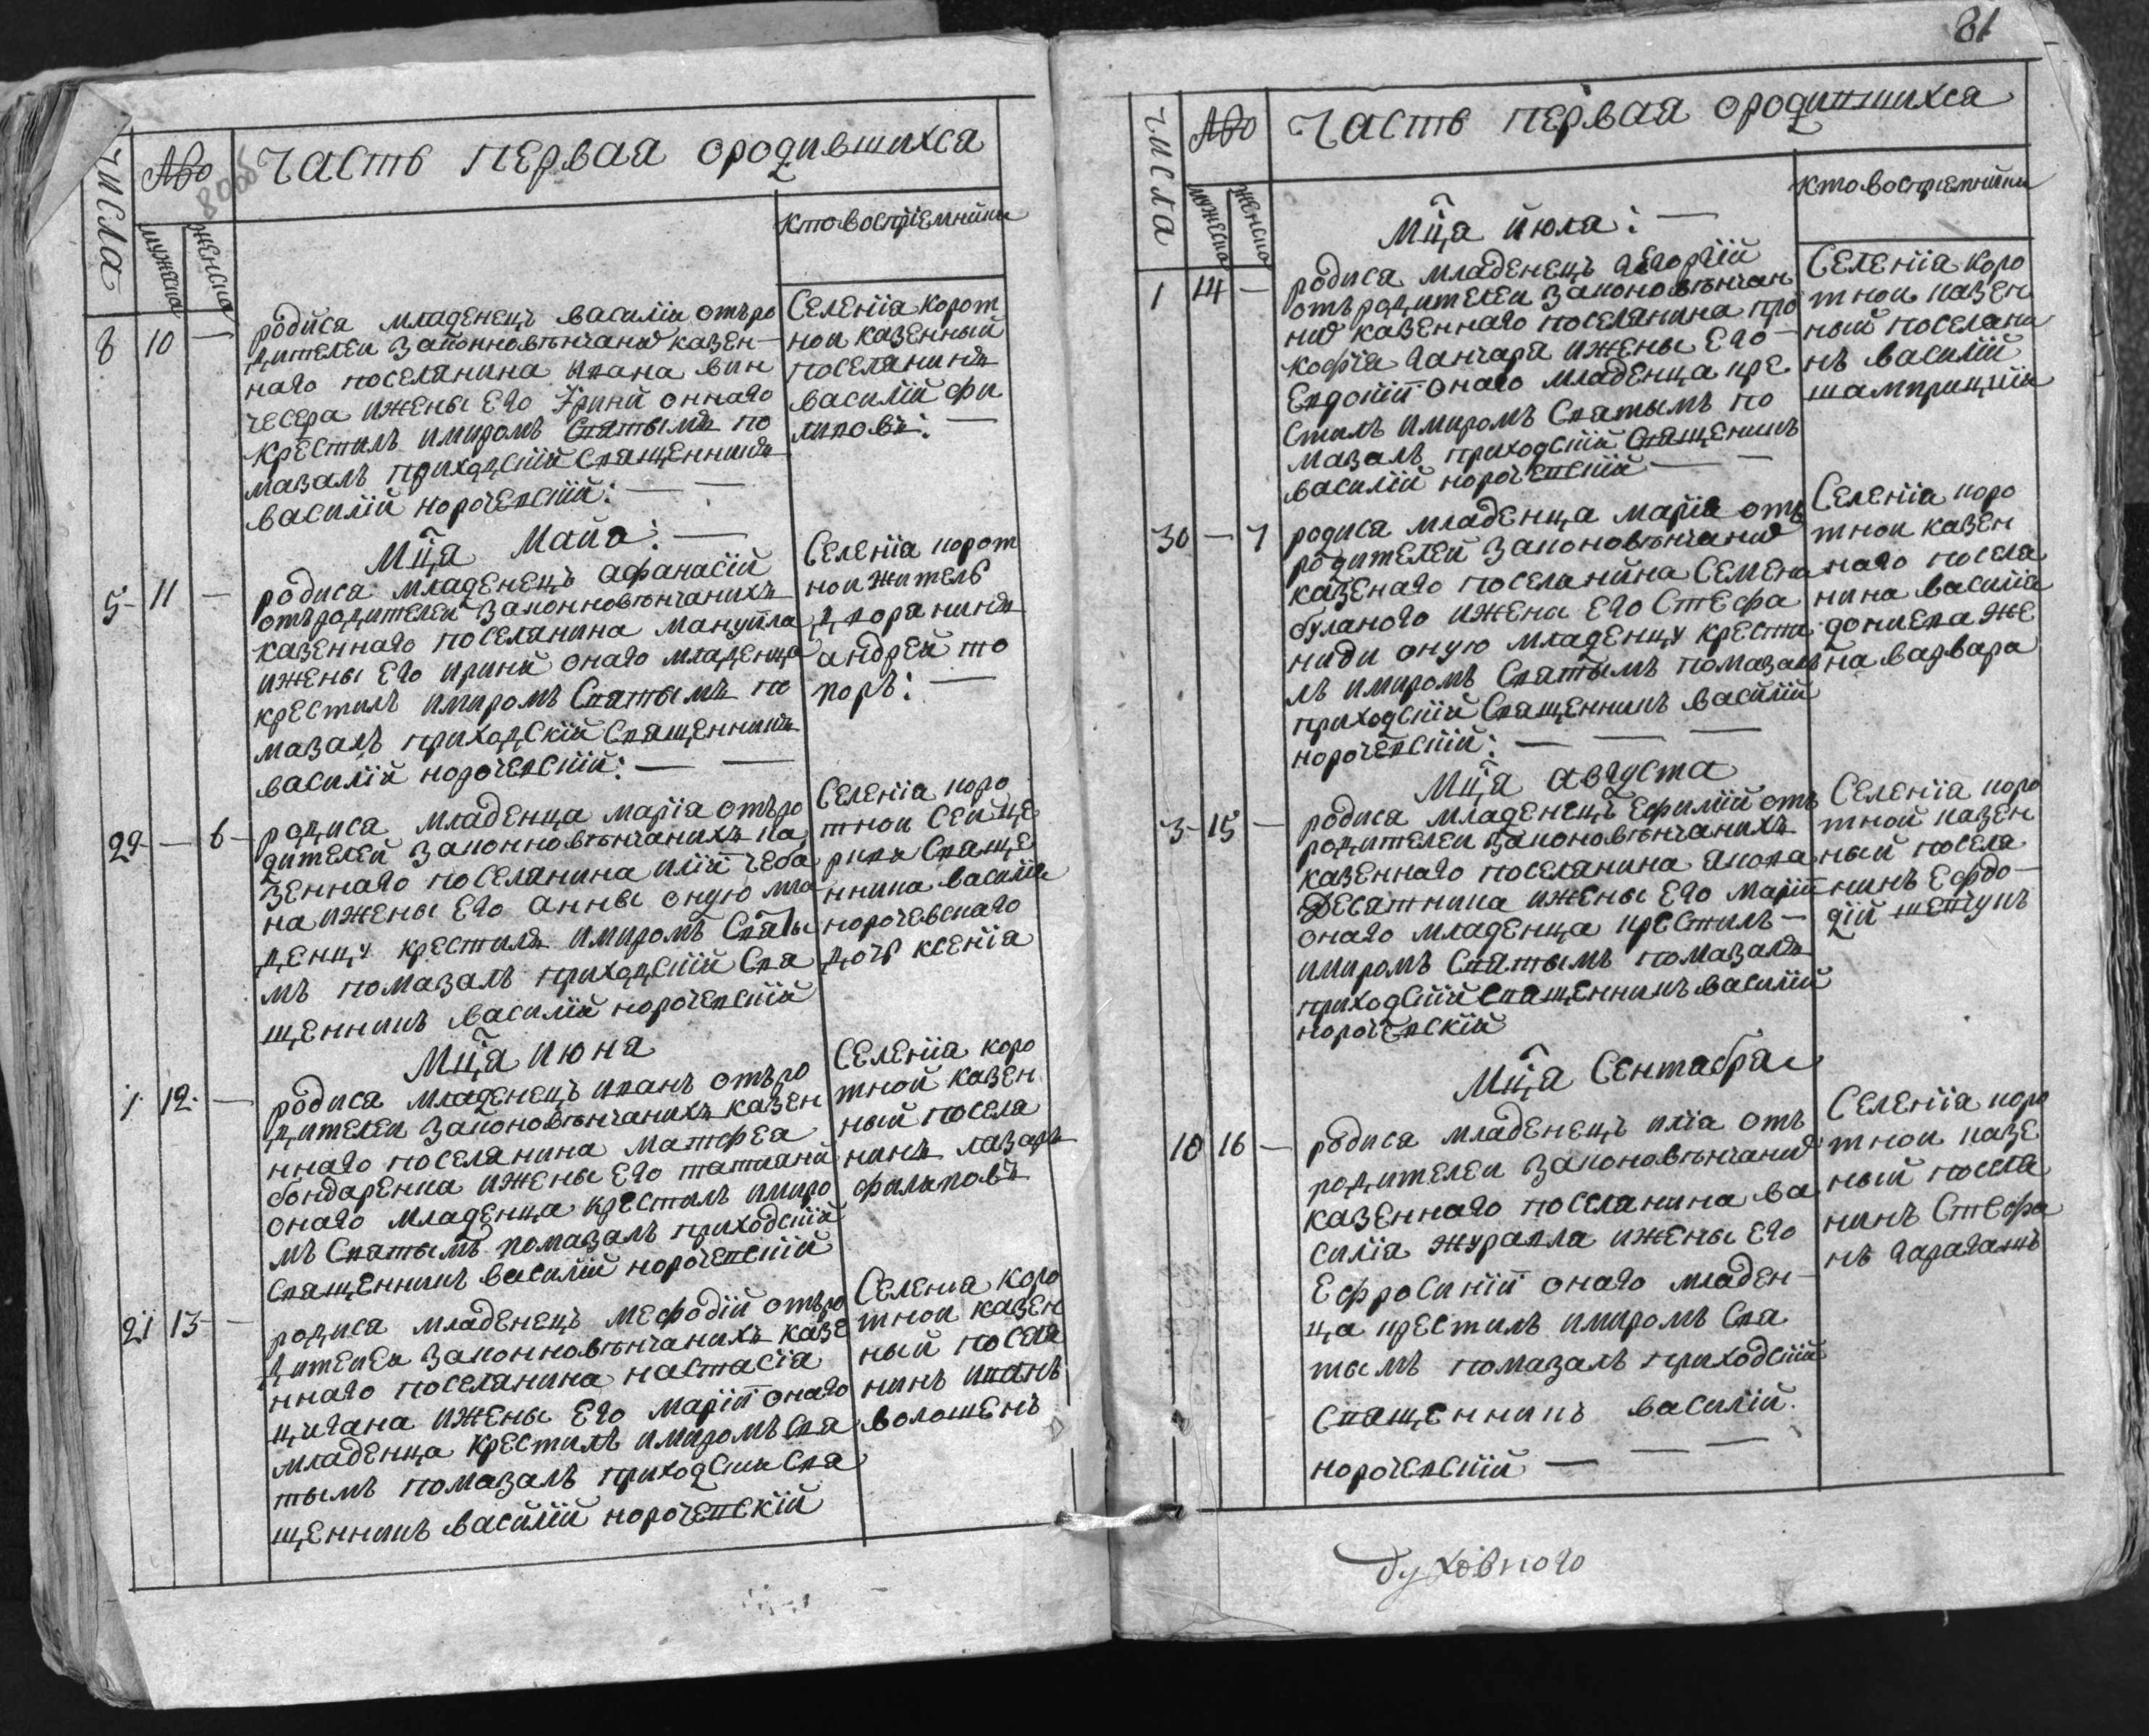 81
числа
№
80об
часть первая ородившихса
мужеска
женска
кто воспрiемники
8 10 —
родиса младенецъ василiи отъро
дителеи законновѣнчаний казен-
наго поселянина ивана вин
чесера ижены его Ирини оннаго
крестилъ имиромъ святымъ по
мазалъ приходскiй священникъ
василiй корочевскiй: — —
Селенiя корот
нои казенный
поселянинъ
василiй фи
липовъ: —
мца майа: —
5 11 —
родиса младенецъ афанасiй
отъ родителеи законновѣнчанихъ
казеннаго поселянина мануила
ижены его ирини онаго младенца
крестилъ имиромъ святымъ по
мазалъ приходскiй священникъ
василiй корочевскiй: — —
Селенiя корот
нои житель
дворанинъ
андрей то
поръ: —
29 — 6
родиса младенца марiiа отъро
дителей законновѣнчанихъ ка
зеннаго поселянина илiи чеба
на ижены его анны оную мла
денцу крестилъ имиромъ святы
мъ помазалъ приходскiй свя
щенникъ василiй корочевскiй
Селенiя коро
тнои сей це
ркви свяще
нника василiя
корочевскаго
дочь ксенiя
мца июня
1 12 —
родиса младенецъ иванъ отъро
дителеи законовѣнчанихъ казен
ннаго поселянина матфеа
бондаренка ижены его татиани
онаго младенца крестилъ имиро
мъ святымъ помазалъ приходскiй
священникъ василiй корочевскiй
Селенiя коро
тной казен
ный поселя
нинъ лазарь
филиповъ
21 13 —
родиса младенецъ мефодiй отъро
дителеи законновѣнчанихъ казе
ннаго поселянина настасiа
цигана ижены его марiи онаго
младенца крестилъ имиромъ свя
тымъ помазалъ приходскiи свя
щенникъ василiй корочевскiй
Селения коро
тнои казен
ный поселя
нинъ иванъ
волошенъ
числа
№
часть первая ородившихся
мужеска
женска
кто воспрiемники
мца июля: —
1 14 —
родиса младенецъ георгiй
отъ родителеи законовѣнчан
ний казеннаго поселянина про
кофiя ганчара ижены его —
Евдокiи онаго младенца кре
стилъ имиромъ святымъ по
мазалъ приходскiй священникъ
василiй корочевскiй — —
Селенiя коро
тнои казен
ный поселяни
нъ василiй
30 — 7
родиса младенца марiiа отъ
родителей законовѣнчаний
казенаго поселянина Семена
буланого ижены его Стефа
ниди оную младенцу крести
лъ имиромъ святымъ помазалъ
приходскiй священникъ василiй
корочевскiй: — — —
Селенiя коро
тнои казен
наго поселя
нина василiя
донцева же
на варвара
мца августа
3 15 —
родиса младенецъ Ефимiй отъ
родителеи законовѣнчанихъ
казеннаго поселянина якова
Десатника ижены его марiи
онаго младенца крестилъ —
имиромъ святымъ помазалъ
приходскiй священникъ василiй
корочевскiй
Селенiя коро
тной казен
ный поселя
нинъ Евдо-
кiй шевчукъ
мца Сентабра
10 16 —
родиса младенецъ илiа отъ
родителеи законовѣнчаний
казеннаго поселянина ва
силiя журавла ижены его
Ефросинiи онаго младен-
ца крестилъ имиромъ свя
тымъ помазалъ приходскiй
священникъ василiй
корочевскiй — — —
Селенiя коро
тнои казе
ный поселя
нинъ Стефа
нъ карагашъ
духовного